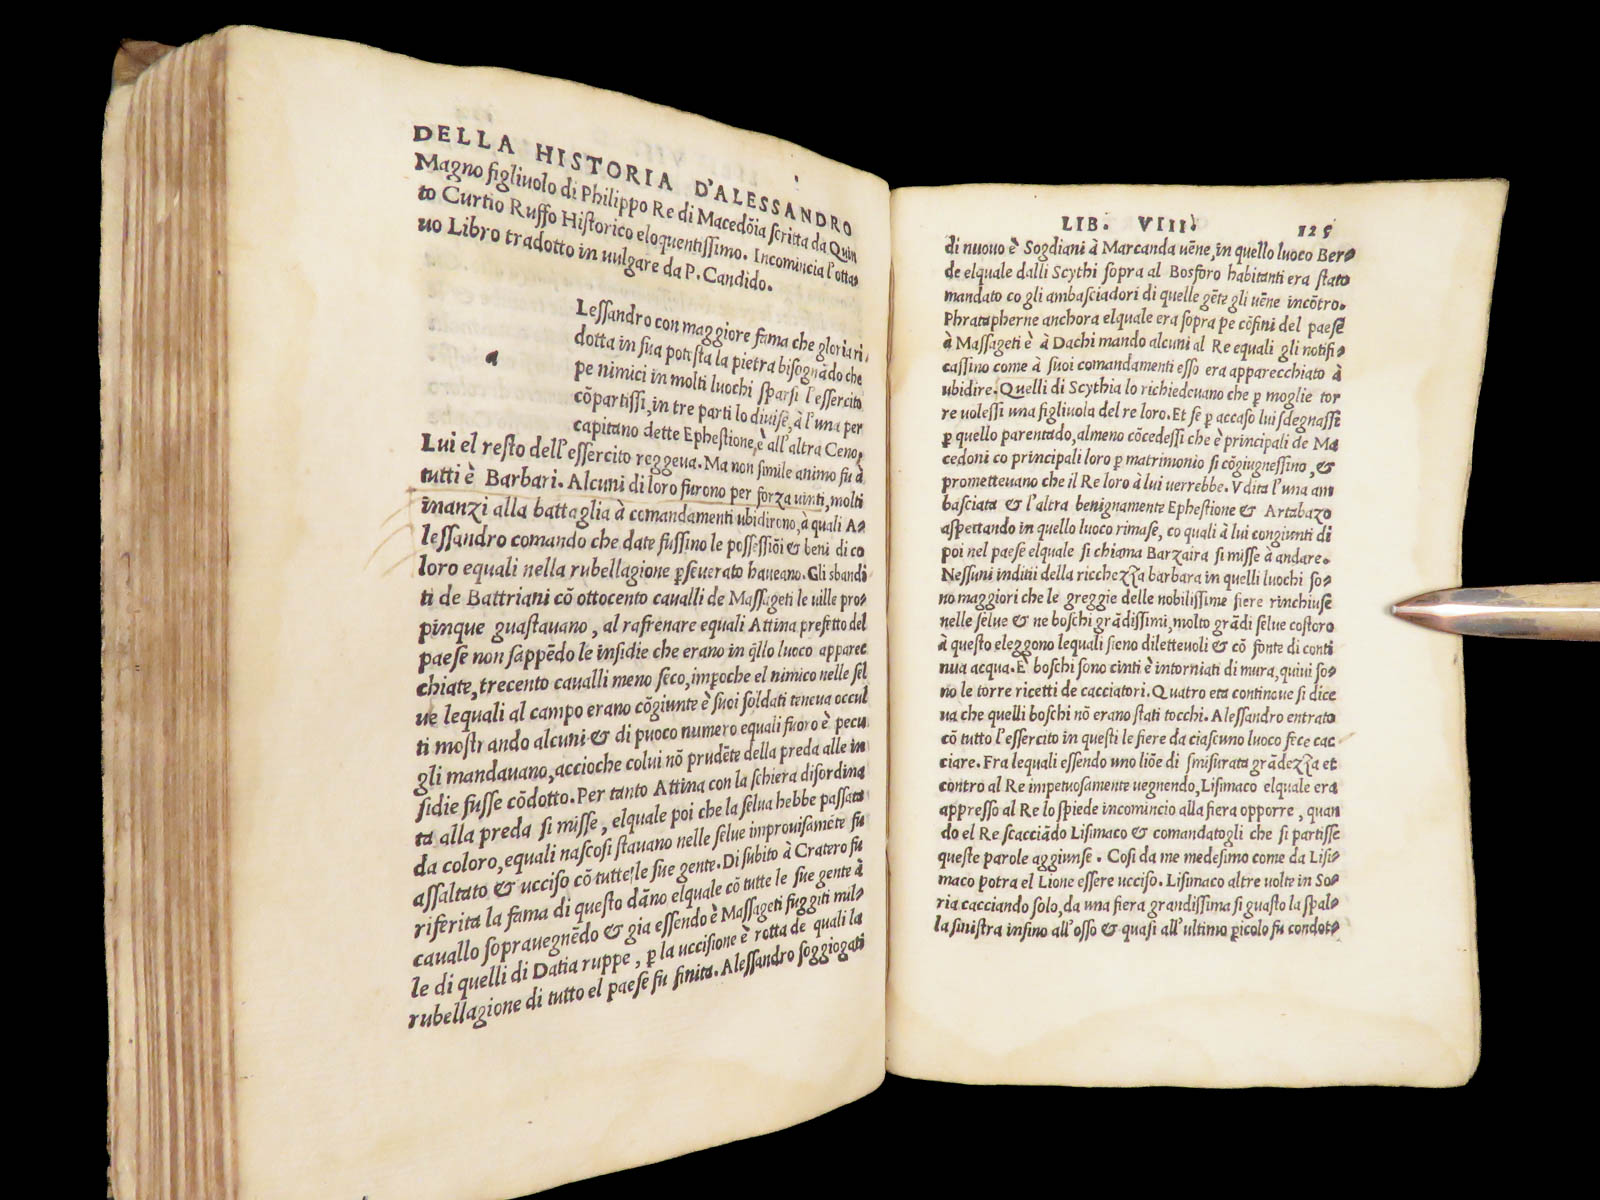 DELLA HISTORIA D'ALESSANDRO
Magno figliuolo di Philippo Re di Macedõia scritta da Quin
to Curtio Ruffo Historico eloquentissimo. Incomincia l'otta-
uo Libro tradotto in uulgare da P. Candido.
a
Lessandro con maggiore fama che gloria ri-
dotta in sua potesta la pietra bisognãdo che
pe nimici in molti luochi sparsi l'essercito
cõpartissi, in tre parti lo diuise, à l'una per
capitano dette Ephestione, è all'altra Ceno,
Lui el resto dell'essercito reggeua. Ma non simile animo fu à
tutti è Barbari. Alcuni di loro furono per forza uinti, molti
inanzi alla battaglia à comandamenti ubidirono, à quali A-
lessandro comando che date fussino le possessiõi & beni di co
loro equali nella rubellagione perseuerato haueano. Gli sbandi
ti de Battriani cõ ottocento caualli de Massageti le uille pro-
pinque guastauano, al rafrenare equali Attina prefetto del
paese non sappẽdo le insidie che erano in q̃llo luoco apparec
chiate, trecento caualli meno seco, imꝑoche el nimico nelle sel
ue lequali al campo erano cõgiunte è suoi soldati teneua occul
ti mostrando alcuni & di puoco numero equali fuoro è pecu
gli mandauano, accioche colui nõ prudẽte della preda alle in
sidie fusse cõdotto. Per tanto Attina con la schiera disordina
ta alla preda si misse, elquale poi che la selua hebbe passata
da coloro, equali nascosi stauano nelle selue improuisamẽte fu
assaltato & ucciso cõ tutte le sue gente. Di subito à Cratero fu
riferita la fama di questo dãno elquale cõ tutte le sue gente à
cauallo soprauegnẽdo & gia essendo è Massageti fuggiti mil-
le di quelli di Datia ruppe, ꝑ la uccisione è rotta de quali la
rubellagione di tutto el paese fu finita. Alessandro soggiogati
LIB. VIII. 125
di nuouo è Sogdiani à Marcanda uẽne, in quello luoco Ber-
de elquale dalli Scythi sopra al Bosforo habitanti era stato
mandato co gli ambasciadori di quelle gẽte gli uẽne incõtro.
Phratapherne anchora elquale era sopra pe cõfini del paese
à Massageti è à Dachi mando alcuni al Re equali gli notifi-
cassino come à suoi comandamenti esso era apparecchiato à
ubidire. Quelli di Scythia lo richiedeuano che ꝑ moglie tor
re uolessi una figliuola del re loro. Et se ꝑ accaso lui sdegnassi
ꝑ quello parentado, almeno cõcedessi che è principali de Ma
cedoni co principali loro ꝑ matrimonio si cõgiugnessino, &
prometteuano che il Re loro à lui uerrebbe. Vdita l'una am
basciata & l'altra benignamente Ephestione & Artabazo
aspettando in quello luoco rimase, co quali à lui congiunti di
poi nel paese elquale si chiama Barzaira si misse à andare.
Nessuni inditii della ricchezza barbara in quelli luochi so-
no maggiori che le greggie delle nobilissime fiere rinchiuse
nelle selue & ne boschi grãdissimi, molto grãdi selue costoro
à questo eleggono lequali sieno diletteuoli & cõ fonte di conti
nua acqua. E boschi sono cinti è intorniati di mura, quiui so-
no le torre ricetti de cacciatori. Quatro eta continoue si dice
ua che quelli boschi nõ erano stati tocchi. Alessandro entrato
cõ tutto l'essercito in questi le fiere da ciascuno luoco fece cac
ciare. Fra lequali essendo uno liõe di smisurata grãdezza et
contro al Re impetuosamente uegnendo, Lisimaco elquale era
appresso al Re lo spiede incomincio alla fiera opporre, quan
do el Re scacciãdo Lisimaco & comandatogli che si partisse
queste parole aggiunse. Cosi da me medesimo come da Lisi-
maco potra el Lione essere ucciso. Lisimaco altre uolte in So-
ria cacciando solo, da una fiera grandissima si guasto la spal-
la sinistra insino all'osso & quasi all'ultimo ꝑicolo fu condot-